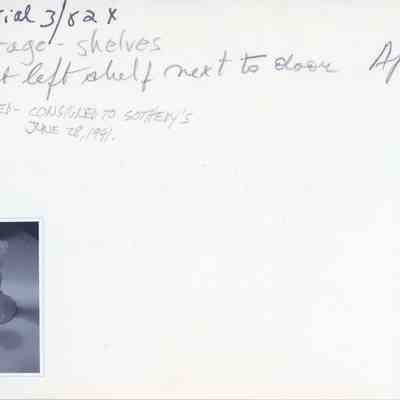 ial 3/82 x
rage - shelves
t left shelf next to door Ap
ED - CONSIGNED TO SOTHEBY'S
JUNE 28, 1991.